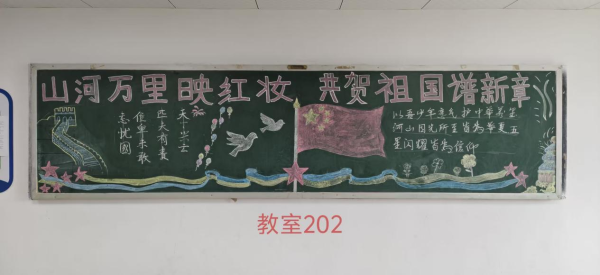 山河万里映红妆 共贺祖国谱新章
天下兴亡
匹夫有责
位卑未敢
忘忧国
以吾少年意气 护中华
河山 目光所至皆为华夏 五
星闪耀皆为信仰
教室202